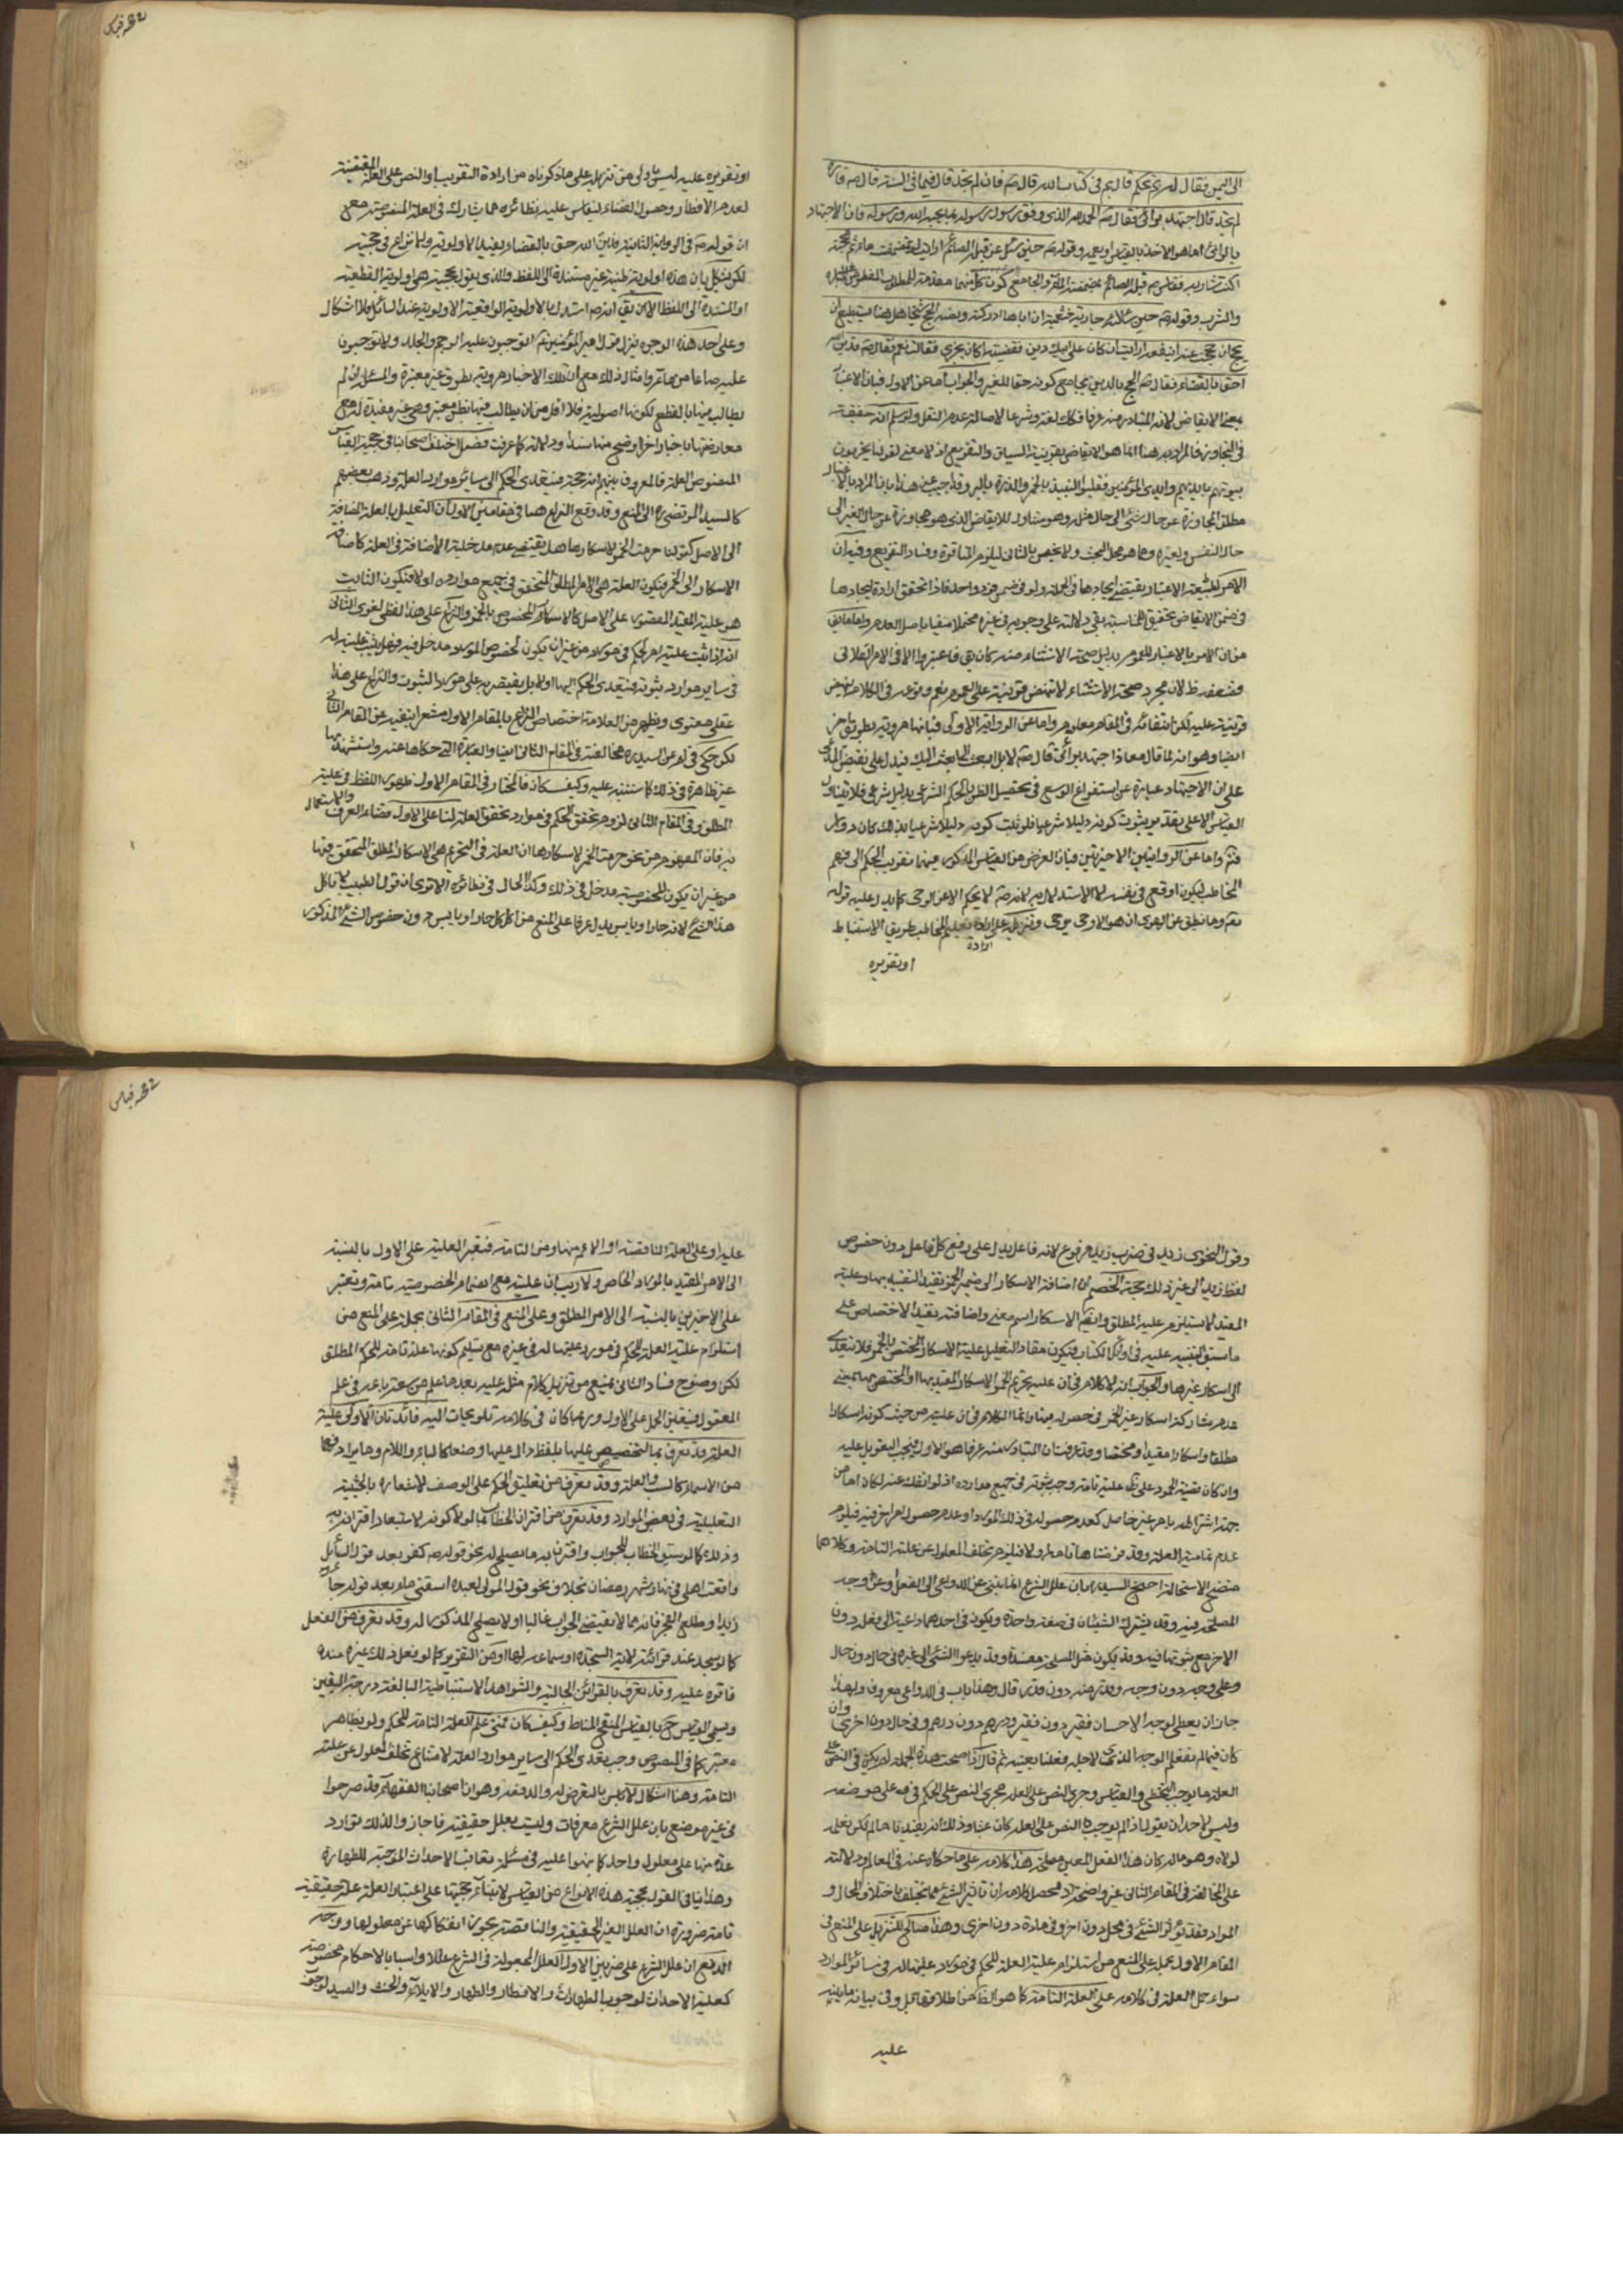 الى اليمن فقال له بم تحكم قال بم فى كتاب الله قال صم فان لم تجد قال فيما فى السنة قال صم فان
لم تجد قال اجتهد برأئى فقال صم الحمد لله الذى وفق رسول رسوله لما يحبه الله ورسوله فان الاجتهاد
بالرائى اما هو الاخذ بالقياس او يعمه وقوله صم حين سئل عن قبلة الصائم ارايت لو تمضمضت بماء ثم مججته
اكنت شاربه فقاس صم قبلة الصائم بمضمضته
والشرب وقوله صم حين سألته جارية خثعمية ان اباها ادركته فريضة الحج شيخا هل هنا لا يستطيع ان
يحج ان حججت عنه اينفعه ارايت ان كان على ابيك دين فقضيته اكان يجزى فقالت نعم فقال صم فدين الله
احق بالقضاء فقاس صم الحج بالدين بجامع كونه حقا للغير والجواب اما عن الاول فبان الاعتبار
بمعنى الاتعاض لانه المتبادر منه عرفا فكك لغة وشرعا لاصالة عدم النقل ولو سلم انه حقيقة
فى التجاوز فالمراد به هنا انما هو الاتعاض بقرينة السياق والتفريع اذ لا معنى لقولنا يخربون
بيوتهم بايديهم وايدى المؤمنين فقيسوا النبيذ بالخمر والذرة بالبر وقد اجيب عن هذا بان المراد بالاعتبار
مطلق المجاوزة عن حال شئ الى حال مثله وهو متناول للاتعاض الذى هو مجاوزة عن حال الغير الى
حال النفس ولغيره وما هو محل البحث ولا يختص بالثانى ليلزم
الامر بطبيعة الاعتبار يقتضى ايجادها فى الجملة ولو فى ضمن فرد واحد فاذا تحقق ارادة ايجادها
فى ضمن الاتعاض تحقيق للمناسبة بقى دلالته على وجوبه فى غيره محتملا منفيا باصل العدم واما ما يق
من ان الامر بالاعتبار للعموم بدليل صحة الاستثناء منه كان يق فاعتبروا الا فى الامر الفلانى
فضعفه ظ لان مجرد صحة الاستثناء لا تنهض قرينة على العموم نعم وقوعه فى الكلام ينهض
قرينة عليه لكن انتفائه فى المقام معلوم واما عن الرواية الاولى فبانها مروية بطريق اخر
ايضا وهو انه لما قال معاذ اجتهد برأئى قال صم لا بل ابعث الى ابعث اليك فيدل على نقيض المدعى
على ان الاجتهاد عبارة عن استفراغ الوسع فى تحصيل الظن بالحكم الشرعى بدليل شرعى فلا يتناول
القياس الا على تقدير ثبوت كونه دليلا شرعيا فلو ثبت كونه دليلا شرعيا بذلك كان دورا
فتم واما عن الروايتين الاخيرتين فبان الغرض من القياس المذكور فيهما تقريب الحكم الى فهم
المخاطب ليكون اوقع فى نفسه لا الاستدلال به لانه صم لا يحكم الا عن الوحى كما يدل عليه قوله
تعم وما ينطق عن الهوى ان هو الا وحى يوحى وتنزيله على ارادة تعليم المخاطب طريق الاستنباط
او تقريره
او تقريره عليه ليس باولى من تنزيله على ما ذكرناه من ارادة التقريب او النص على العلة المقتضية
لعدم الافطار وحصول القضاء ليقاس عليه نظائره مما شارك فى العلة المنصوصة مع
ان قوله صم فى الرواية الثانية فدين الله حق بالقضاء يفيد الاولوية ولا نزاع فى حجيته
لكن يشكل بان هذه اولوية ظنية غير مستندة الى اللفظ والذى يقول بحجيته هى اولوية القطعية
او المستندة الى اللفظ الا ان يق انه صم استدل بالاولوية الواقعية الاولوية عند السائل فلا اشكال
وعلى احد هذه الوجوه ينزل قول امير المؤمنين عم اتوجبون عليه الرجم والجلد ولا توجبون
عليه صاعا من ماء وامثال ذلك مع ان تلك الاخبار مروية بطرق غير معتبرة والمسئلة ان لم
يطالب فيها بالقطع لكونها اصولية فلا اقل من ان يطالب فيها بظن معتبر وهى غير مفيدة له مع
معارضتها باخبار اخر اوضح منها سندا ودلالة كما عرفت فصل اختلف اصحابنا فى حجية القياس
المنصوص العلة فالمعروف بينهم انه حجة فيتعدى الحكم الى سائر موارد العلة وذهب بعضهم
كالسيد المرتضى ره الى المنع وقد وقع النزاع هنا فى مقامين الاول ان التعليل بالعلة المضافة
الى الاصل كقولنا حرمت الخمر لاسكارها هل يقتضى عدم مدخلية الاضافة فى العلة كاضافة
الاسكار الى الخمر فيكون العلة هى الامر المطلق المتحقق فى جميع موارده اولا فيكون الثابت
هو علية المقيد المقصور على الاصل كالاسكار المخصوص بالخمر والنزاع على هذا لفظى لغوى الثانى
انه اذا ثبت علية امر لحكم فى مورد من غير ان يكون لخصوص المورد مدخل فيه فهل يثبت علية له
فى ساير موارد ثبوته فيتعدى الحكم اليها اولا بل يقتصر به على مورد الثبوت والنزاع على هذا
عقلى معنوى ويظهر من العلامة اختصاص النزاع بالمقام الاول مشعرا بنفيه عن المقام الثانى
لكن حكى فى لم عن السيد ره مخالفته فى المقام الثانى ايضا والعبارة التى حكاها عنه واستشهد بها
غير ظاهرة فى ذلك كما سننبه عليه وكيف كان فالمختار فى المقام الاول ظهور اللفظ فى علية
المطلق وفى المقام الثانى لزوم تحقق الحكم فى موارد تحقق العلة لنا على الاول قضاء العرف والاستعمال
به فان المفهوم من نحو حرمت الخمر لاسكارها ان العلة فى التحريم هى الاسكار المطلق المتحقق فيها
من غير ان يكون للخصوصية مدخل فى ذلك وكذا الحال فى نظائره الا ترى ان قول الطبيب لا تاكل
هذا الشئ لانه حار او يابس يدل عرفا على المنع من اكل كل حار او يابس دون خصوص الشئ المذكور
وقول النحوى زيد فى ضرب زيد مرفوع لانه فاعل يدل على رفع كل فاعل دون خصوص
لفظ زيد الى غير ذلك حجة الخصم ان اضافة الاسكار الى ضمير الخمر تفيد التقييد بها وعلية
المقيد لا يستلزم علية المطلق وايضا الاسكار اسم معنى واضافته يفيد الاختصاص على
ما سبق التنبيه عليه فى اوائل الكتاب فيكون مفاد التعليل علية الاسكار المختص بالخمر فلا يتعدى
الى اسكار غيرها والجواب انه لا كلام فى ان علة تحريم الخمر الاسكار المقيد بها او المختص بها بمعنى
عدم مشاركة اسكار غير الخمر فى حصوله فيها وانما الكلام فى ان عليته من حيث كونه اسكارا
مطلقا او اسكارا مقيدا ومختصا وقد عرفت ان المتبادر منه عرفا هو الاول فيجب التعويل عليه
وان كان قضية الجمود على ظه علية تامة وجب ثبوته فى جميع موارده اذ لو انفك عنه لكان اما من
جهة اشتراطه بامر غير حاصل كعدم حصوله فى ذلك المورد او عدم حصول امر اخر فيه فيلزم
عدم تمامية العلة وقد فرضناها تامة اولا فيلزم تخلف المعلول عن علته التامة وكلاهما
متضح الاستحالة احتج السيد ره بان علل الشرع انما تنبئ عن الدواعى الى الفعل او عن وجه
المصلحة فيه وقد يشترك الشيئان فى صفة واحدة ويكون فى احدهما داعية الى فعله دون
الاخر مع ثبوتها فيه وقد يكون مثل المصلحة مفسدة وقد يدعو الشئ الى غيره فى حال دون حال
وعلى وجه دون وجه وقدر منه دون قدر قال وهذا باب فى الدواعى معروف ولهذا
جاز ان يعطى لوجه الاحسان فقير دون فقير ودرهم دون درهم وفى حال دون اخرى وان
كان فيما لم نفعله الوجه الذى لاجله فعلنا بعينه ثم قال اذا صحت هذه الجملة لم يكن فى النص على
العلة ما يوجب التخطى والقياس وجرى النص على العلة مجرى النص على الحكم فى قصره على موضعه
وليس لاحد ان يقول اذا لم يوجب النص على العلة كان عبثا وذلك انه يفيدنا ما لم نكن نعلمه
لولاه وهو ما له كان هذا الفعل المعين مصلحة هذا كلامه على ما حكاه عنه فى المعالم ودلالته
على المخالفة فى المقام الثانى غير واضحة اذ محصل كلامه ان تاثير الشئ مما يختلف باختلاف الحال و
المواد فقد يؤثر الشئ فى محل دون اخر وفى مادة دون اخرى وهذا صالح للتنزيل على المنع فى
المقام الاول بحمله على المنع من استلزام علية العلة للحكم فى مورد عليتها له فى سائر الموارد
سواء حمل العلة فى كلامه على العلة التامة كما هو الظاهر من اطلاقها
عليه
عليه او على العلة الناقصة او الاعم منها ومن التامة فتعتبر العلية على الاول بالنسبة
الى الامر المقيد بالمورد الخاص ولا ريب ان عليته مع انضمام الخصوصية تامة وتعتبر
على الاخيرين بالنسبة الى الامر المطلق وعلى المنع فى المقام الثانى بحمله على المنع من
استلزام علية العلة للحكم فى مورد عليتها له فى غيره مع تسليم كونها علة تامة للحكم المطلق
لكن وضوح فساد الثانى يمنع من تنزيل كلام مثله عليه بعد ما علم من سعة باعه فى علم
المعقول فيتعين الحمل على الاول وربما كان فى كلامه تلويحات اليه فائدتان الاولى علية
العلة قد تعرف بالتنصيص عليها بلفظ دال عليها وضعا كالباء واللام وما يرادفهما
من الاسماء كالسبب والعلة وقد تعرف من تعليق الحكم على الوصف لاشعاره بالحيثية
التعليلية فى بعض الموارد وقد تعرف من اقتران الخطاب بما لولا كونه لاستبعد اقترانه به
وذلك كالو سبق الخطاب للجواب واقترن به ما يصلح له نحو قوله صم كفر بعد قول السائل
واقعت اهلى فى نهار شهر رمضان بخلاف نحو قول المولى لعبده اسقنى ماء بعد قوله جاء
زيد او طلع الفجر فانهما لا يقتضى الجواب غالبا او لا يصلح المذكور له وقد تعرف من الفعل
كالو سجد عند قرائته لاية السجدة او سماعه لها او من التقرير كما لو فعل ذلك غيره عنده
فاقره عليه وقد تعرف بالقرائن الحالية والشواهد الاستنباطية البالغة درجة اليقين
ويسمى القياس ح بالقياس المنقح المناط وكيف كان فمتى علم العلة التامة للحكم ولو بظاهر
معتبر كما فى المنصوص وجب تعدى الحكم الى ساير موارد العلة لامتناع تخلف المعلول عن علته
التامة وهنا اشكال لا باس بالتعرض له ولدفعه وهو ان اصحابنا الفقهاء قد صرحوا
فى غير موضع بان علل الشرع معرفات وليست بعلل حقيقية فاجازوا لذلك توارد
عدة منها على معلول واحد كما نبهوا عليه فى مسئلة تعاقب الاحداث الموجبة للطهارة
وهذا ينافى القول بحجية هذه الانواع من القياس لابتناء حجيتها على اعتبار العلة علة حقيقية
تامة ضرورة ان العلل الغير الحقيقية والناقصة يجوز انفكاكها عن معلولها ووجه
الدفع ان علل الشرع على ضربين الاول العلل المجعولة فى الشرع عللا واسبابا لاحكام مخصوصة
كعلية الاحداث لوجوب الطهارات والافطار والظهار والايلاء والحنث